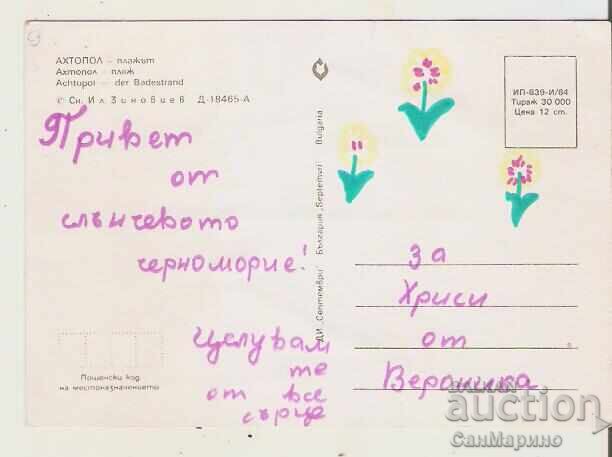 АХТОПОЛ — плажът
Ахтопол — пляж
Achtopol — der Badestrand
© Сн. Ил. Зиновиев Д-18465-А
Привет
от
слънчевото
черноморие!
Целувам
те
от все
сърце
Пощенски код
на местоназначението
ДИ „Септември“ България "Septemvri" Bulgaria
ИП-839-И/84
Тираж 30 000
Цена 12 ст.
За
Хриси
от
Вероника
auction
СанМарино